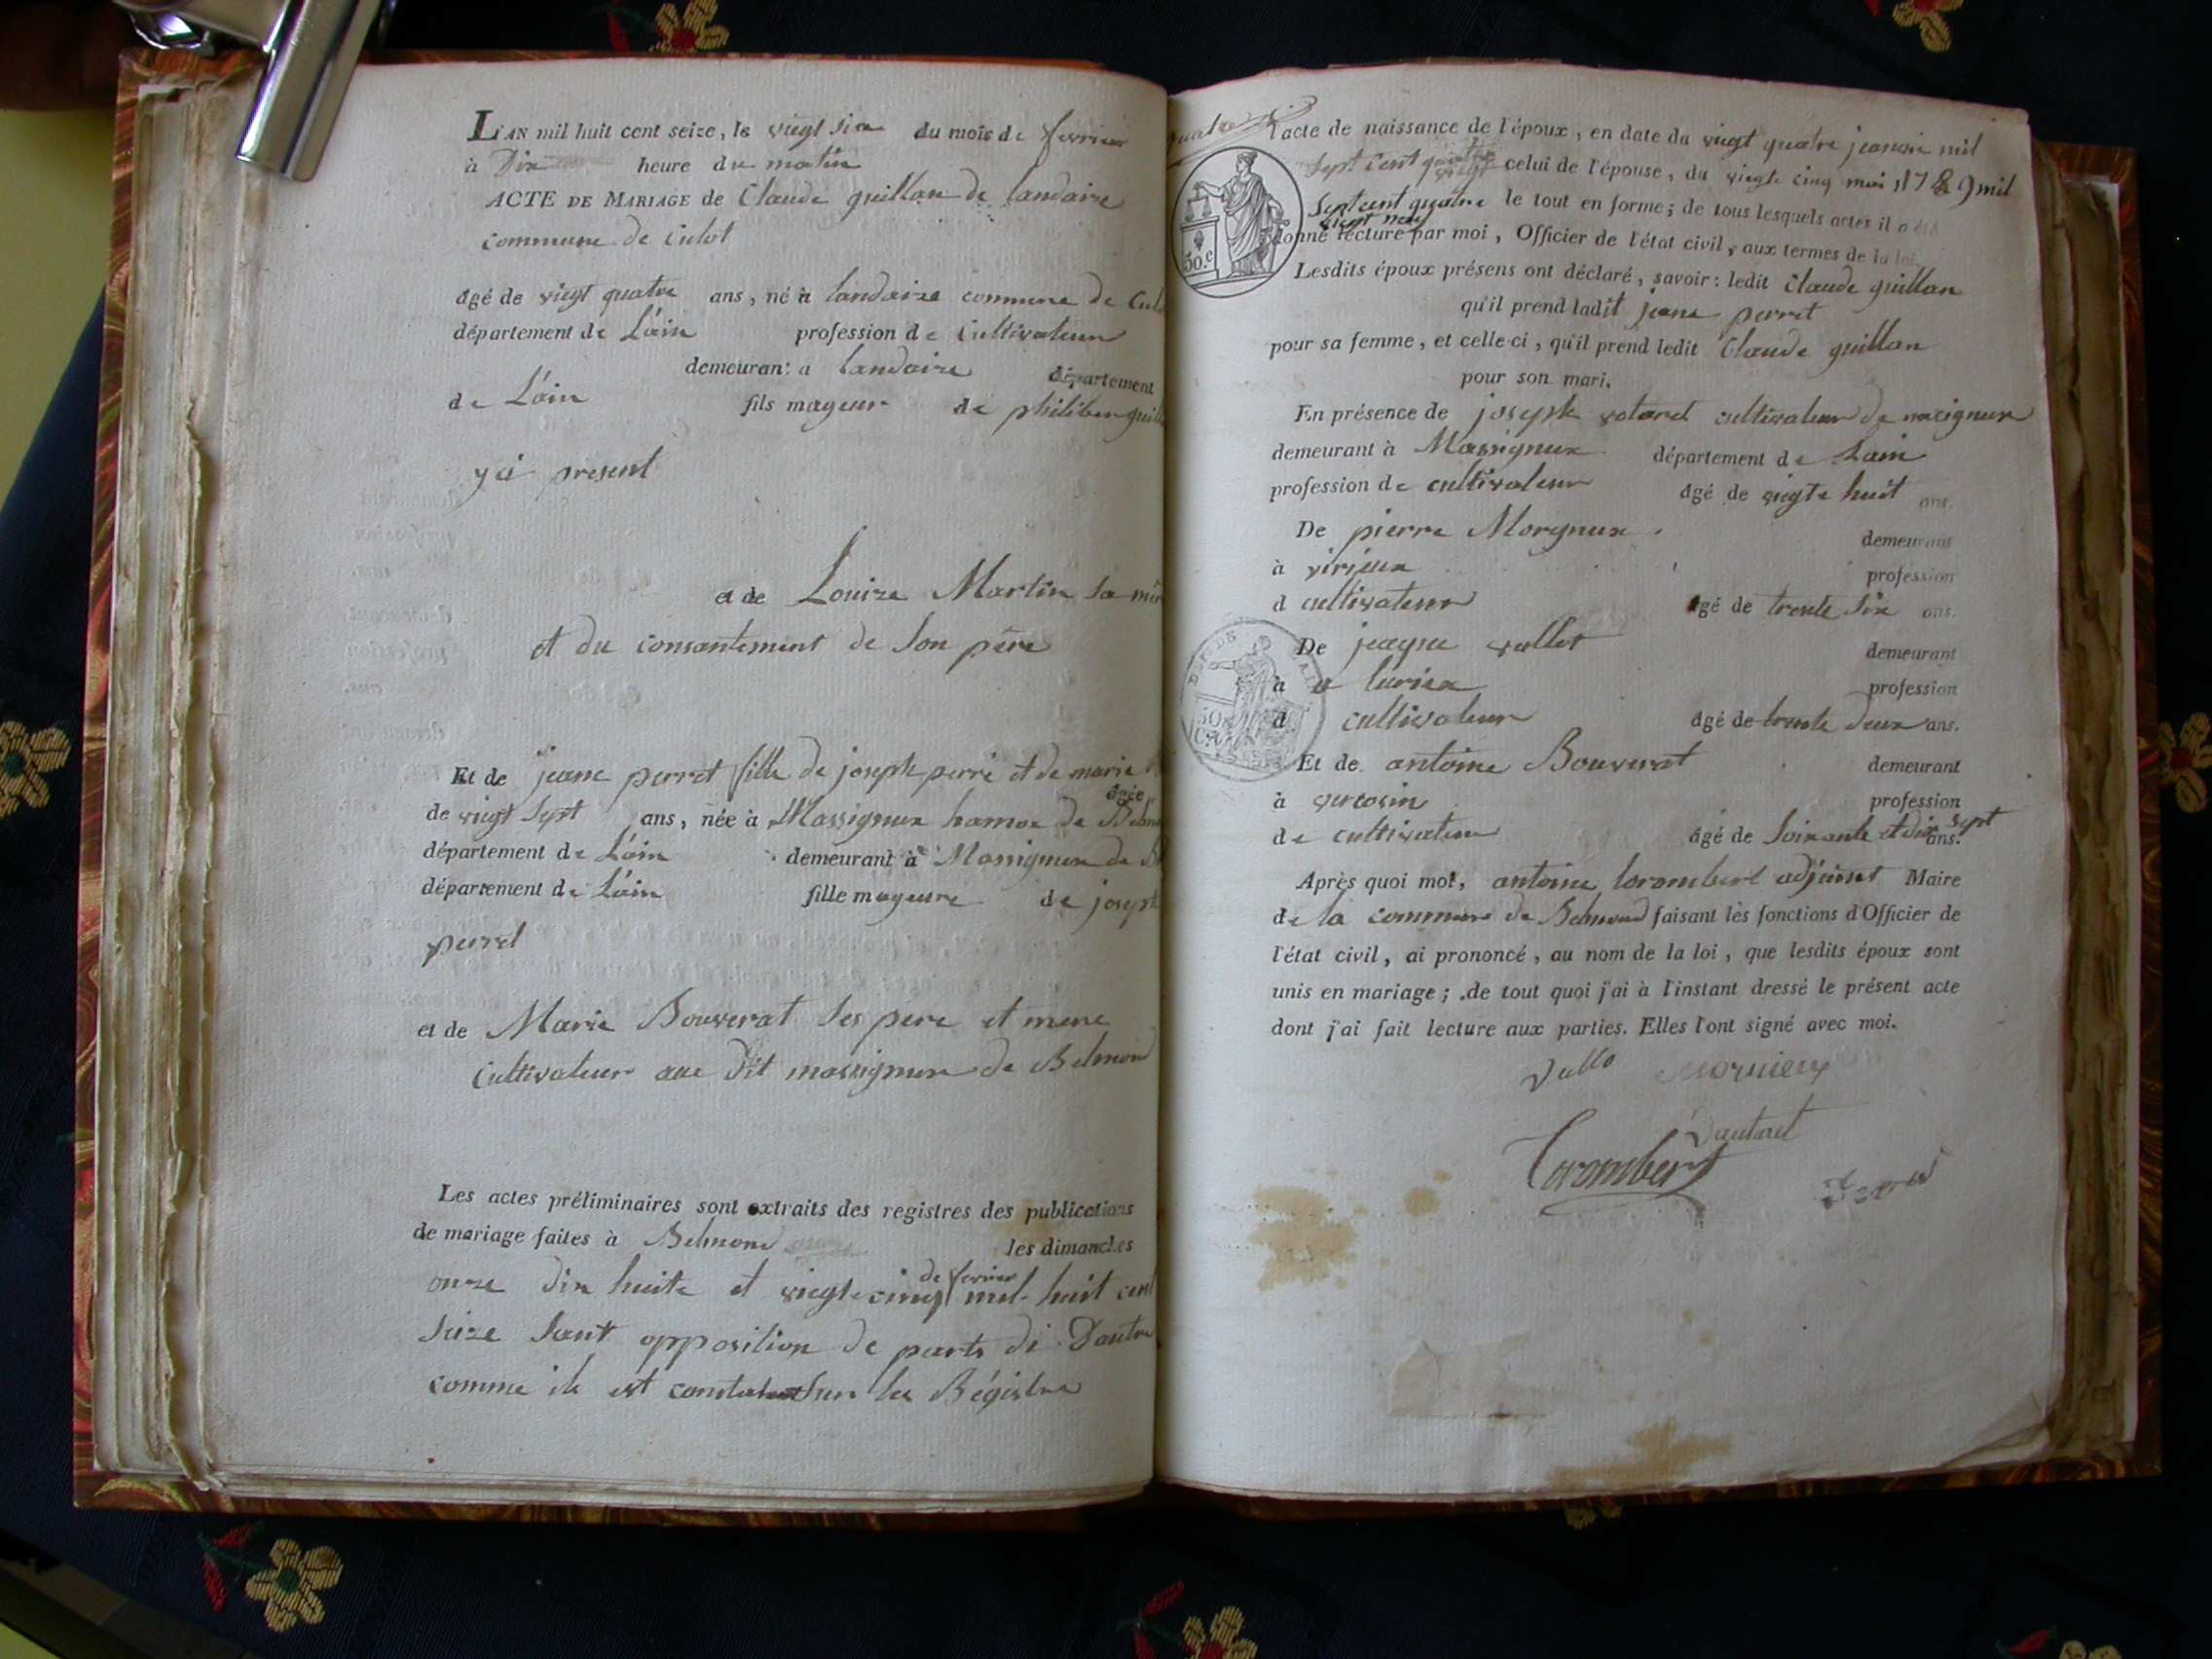 L'AN mil huit cent seize, le viegt six du mois de fevrier
à Dix heure du matin
ACTE DE MARIAGE de Claude guillon de landaize
commune de culot
âgé de viegt quatre ans, né à landaize commune de Cul
département de L'ain profession de Cultivateur
demeurant a landaize département
de L'ain fils mageur de philiber guill
y ci present
et de Louize Martin sa mer
et du consantement de son père
Et de jeane perret fille de joseph perré et de marie
âgée
de viegt sept ans, née à Massigneux hamox de Belmo
département de L'ain demeurant à Massigneux de B
département de L'ain fille mageure de joseph
perret
et de Marie Bouverat ses pere et mere
Cultivateur aue dit massigneux de Belmond
Les actes préliminaires sont extraits des registres des publications
de mariage faites à Belmond les dimanches
onze dix huite et viegte cinq de fevrier mil huit cent
seize sant opposition de parts di Dautre
comme ile est constaté sur les Régistre
l'acte de naissance de l'époux, en date du viegt quatre janvié mil
sept cent quatre viegt celui de l'épouse, du viegte cinq mai 1789 mil
sept cent quatre viegt neuf le tout en forme; de tous lesquels actes il a été
donné lecture par moi, Officier de l'état civil, aux termes de la loi.
Lesdits époux présens ont déclaré, savoir: ledit Claude guillon
qu'il prend ladit jeane perret
pour sa femme, et celle-ci, qu'il prend ledit Claude guillon
pour son mari.
En présence de joseph votaret cultivateur de macigneux
demeurant à Massigneux département de Lain
profession de cultivateur âgé de viegte huit ans.
De pierre Morgneux demeurant
à virieux profession
d cultivateur âgé de trente six ans.
De jaque vallet demeurant
à a luriex profession
d cultivateur âgé de trente deux ans.
Et de antoine Bouverat demeurant
à vercosin profession
de cultivateur âgé de soixante et dix sept ans.
Après quoi moi, antoine Corombert adjoint Maire
de la commune de Belmond faisant les fonctions d'Officier de
l'état civil, ai prononcé, au nom de la loi, que lesdits époux sont
unis en mariage; de tout quoi j'ai à l'instant dressé le présent acte
dont j'ai fait lecture aux parties. Elles l'ont signé avec moi.
Vallo
Corombert
50.c